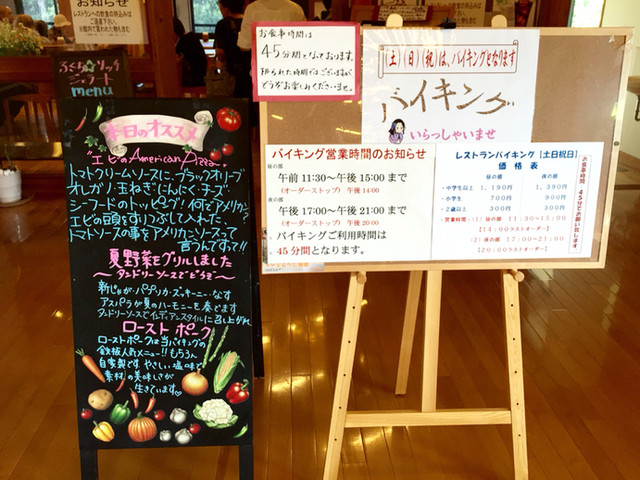 お知らせ
レストランへの飲食の持込みは
ご遠慮下さい。
menu
本日のオススメ
エビのAmerican Pizza
トマトクリームソースに、ブラックオリーブ
オレガノ・玉ねぎ・にんにく・チーズ
シーフードのトッピング！何でアメリカン？
エビの頭をすりつぶして入れた、
トマトソースの事をアメリカンソースって
言うんですって!!
夏野菜をグリルしました
～タンドリーソースでどうぞ～
新じゃが・パプリカ・ズッキーニ・なす
アスパラが夏のハーモニーを奏でます
タンドリーソースでインディアンスタイルに召し上がれ
ローストポーク
ローストポークは当バイキングの
鉄板人気メニュー!!もちろん
自家製です やさしい塩味で
素材の美味しさが
生きています
お食事時間は
45分間となっております。
限られた時間ではございますが
どうぞお楽しみくださいませ。
(土)(日)(祝)は、バイキングとなります
バイキング
いらっしゃいませ
バイキング営業時間のお知らせ
昼の部
午前 11:30～午後 15:00 まで
(オーダーストップ) 午後 14:00
夜の部
午後 17:00～午後 21:00 まで
(オーダーストップ) 午後 20:00
バイキングご利用時間は
45 分間となります。
レストランバイキング【土日祝日】
価格表
昼の部 夜の部
・中学生以上 1,190円 1,390円
・小学生 700円 900円
・2歳以上 300円 300円
・営業時間 (1) 昼の部 11:30～15:00
【14:00ラストオーダー】
(2) 夜の部 17:00～21:00
【20:00ラストオーダー】
お食事時間、45分でお願い致します